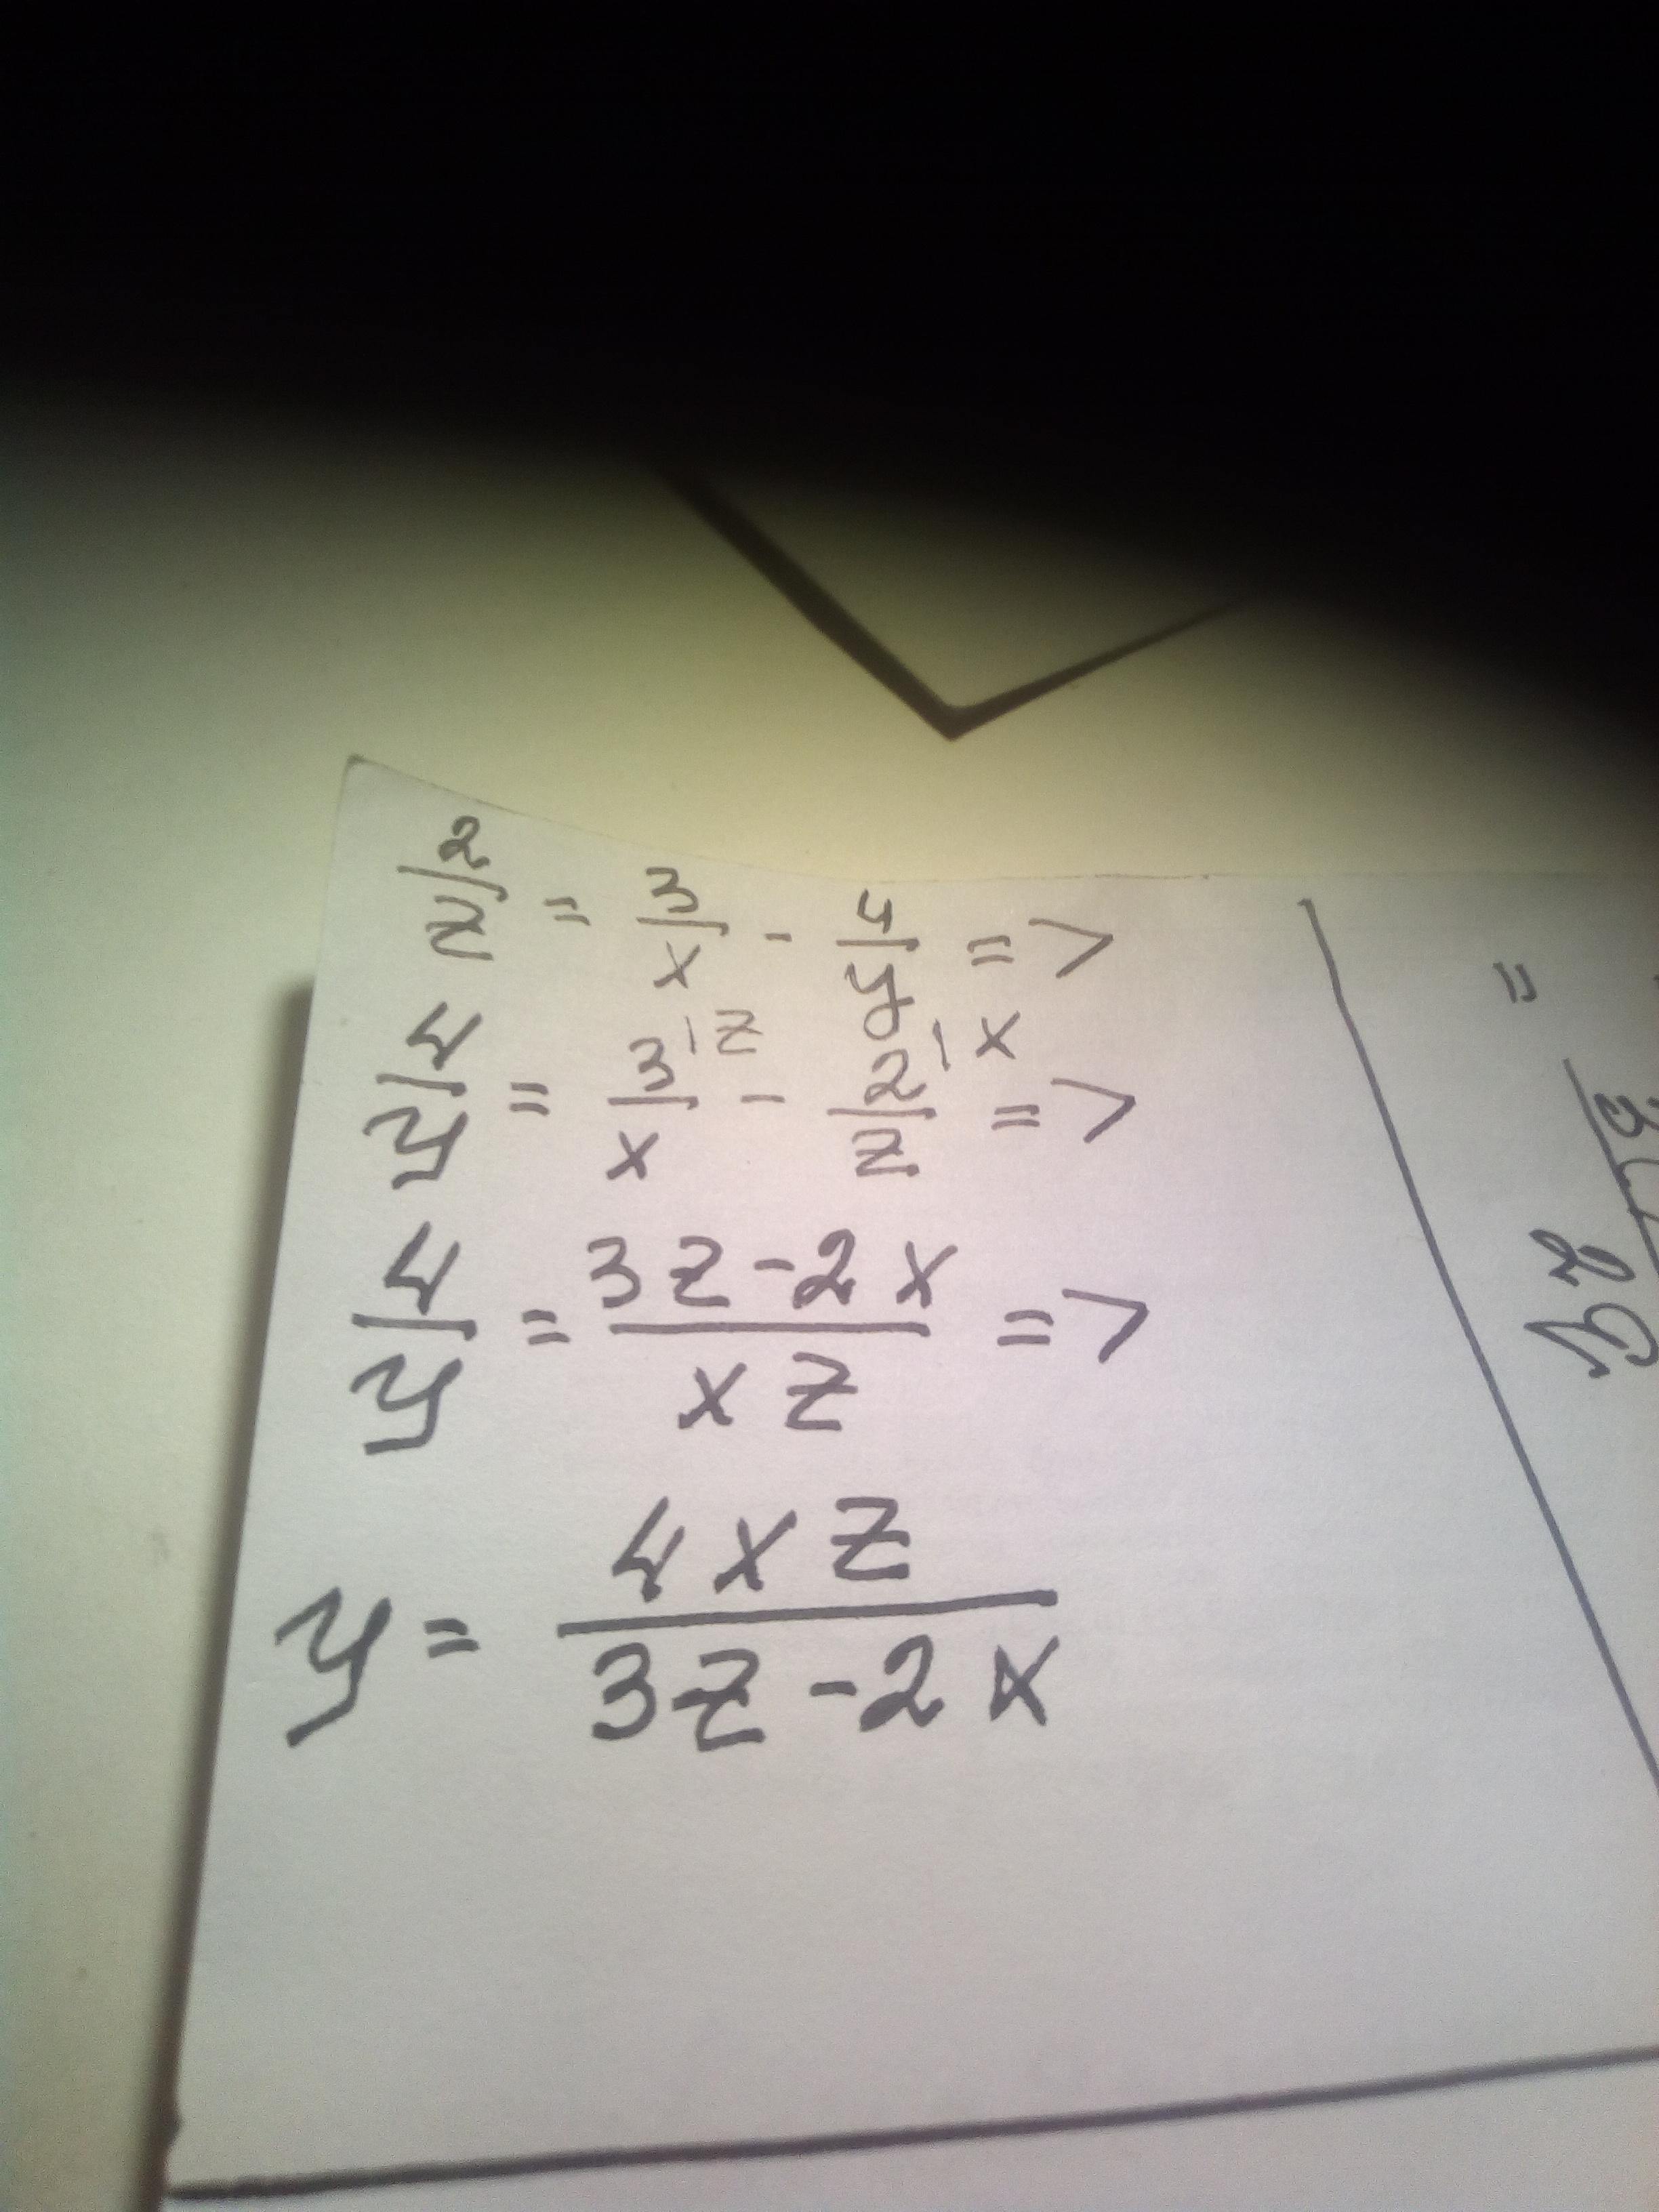 2/z = 3/x - 4/y =>
4/y = 3/x |z - 2/z |x =>
4/y = (3z-2x)/(xz) =>
y = (4xz)/(3z-2x)
=